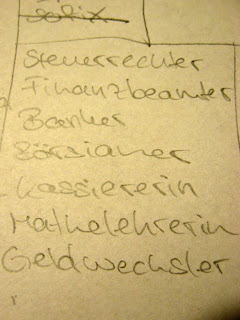 Steuerrechter
Finanzbeamter
Banker
Börsianer
Kassiererin
Mathelehrerin
Geldwechsler